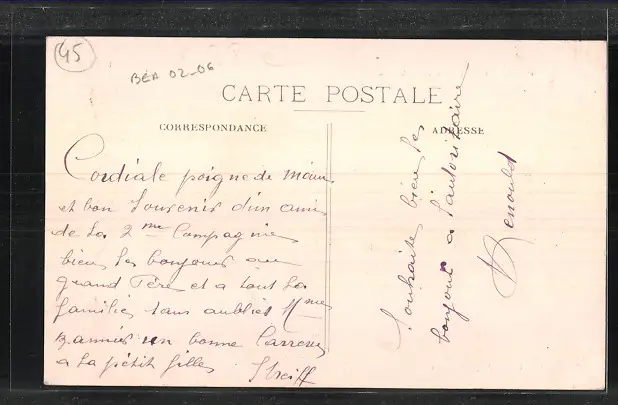 45
BÉA 02-06
CARTE POSTALE
CORRESPONDANCE
ADRESSE
Cordiale poigne de main
et bon Souvenir d'un ami
de la 2me Compagnie
bien les bonjours au
grand Père et a tout La
famille sans oubliet Mme
un bonne Carresse
a La pétit filles
Streiff
Souhaites bien les
bonjour a l'autoritaire
Renould